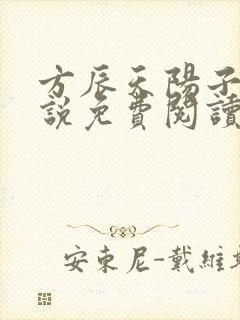 方辰天陽子
說免費閱讀
安東尼-戴維斯